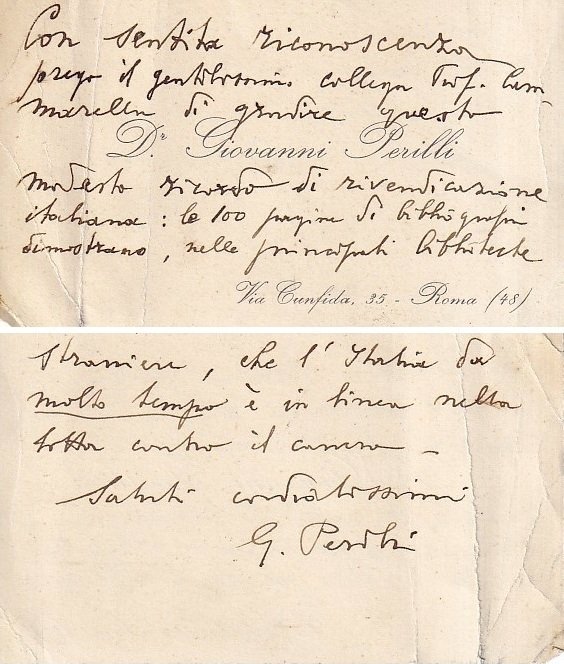 Con sentita riconoscenza
prego il gentilissimo collega Prof. Cam-
marella di gradire questo
Dr Giovanni Perilli
modesto ricordo di rivendicazione
italiana: le 100 pagine di bibliografia
dimostrano, nelle principali biblioteche
Via Cunfida, 35 - Roma (48)
straniere, che l'Italia da
molto tempo è in linea nella
lotta contro il cancro -
Saluti cordialissimi
G. Perilli